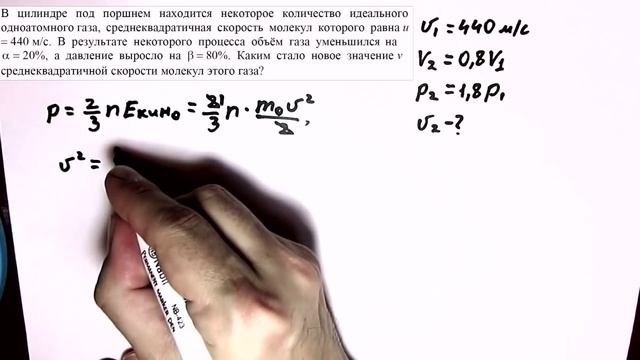 В цилиндре под поршнем находится некоторое количество идеального
одноатомного газа, среднеквадратичная скорость молекул которого равна u
= 440 м/с. В результате некоторого процесса объём газа уменьшился на
α = 20%, а давление выросло на β = 80%. Каким стало новое значение v
среднеквадратичной скорости молекул этого газа?
υ₁ = 440 м/с
V₂ = 0,8V₁
p₂ = 1,8p₁
υ₂ - ?
p = 2/3 n Eкин₀ = 2̸1/3 n · m₀υ²/2̸,
υ² =
NB-423